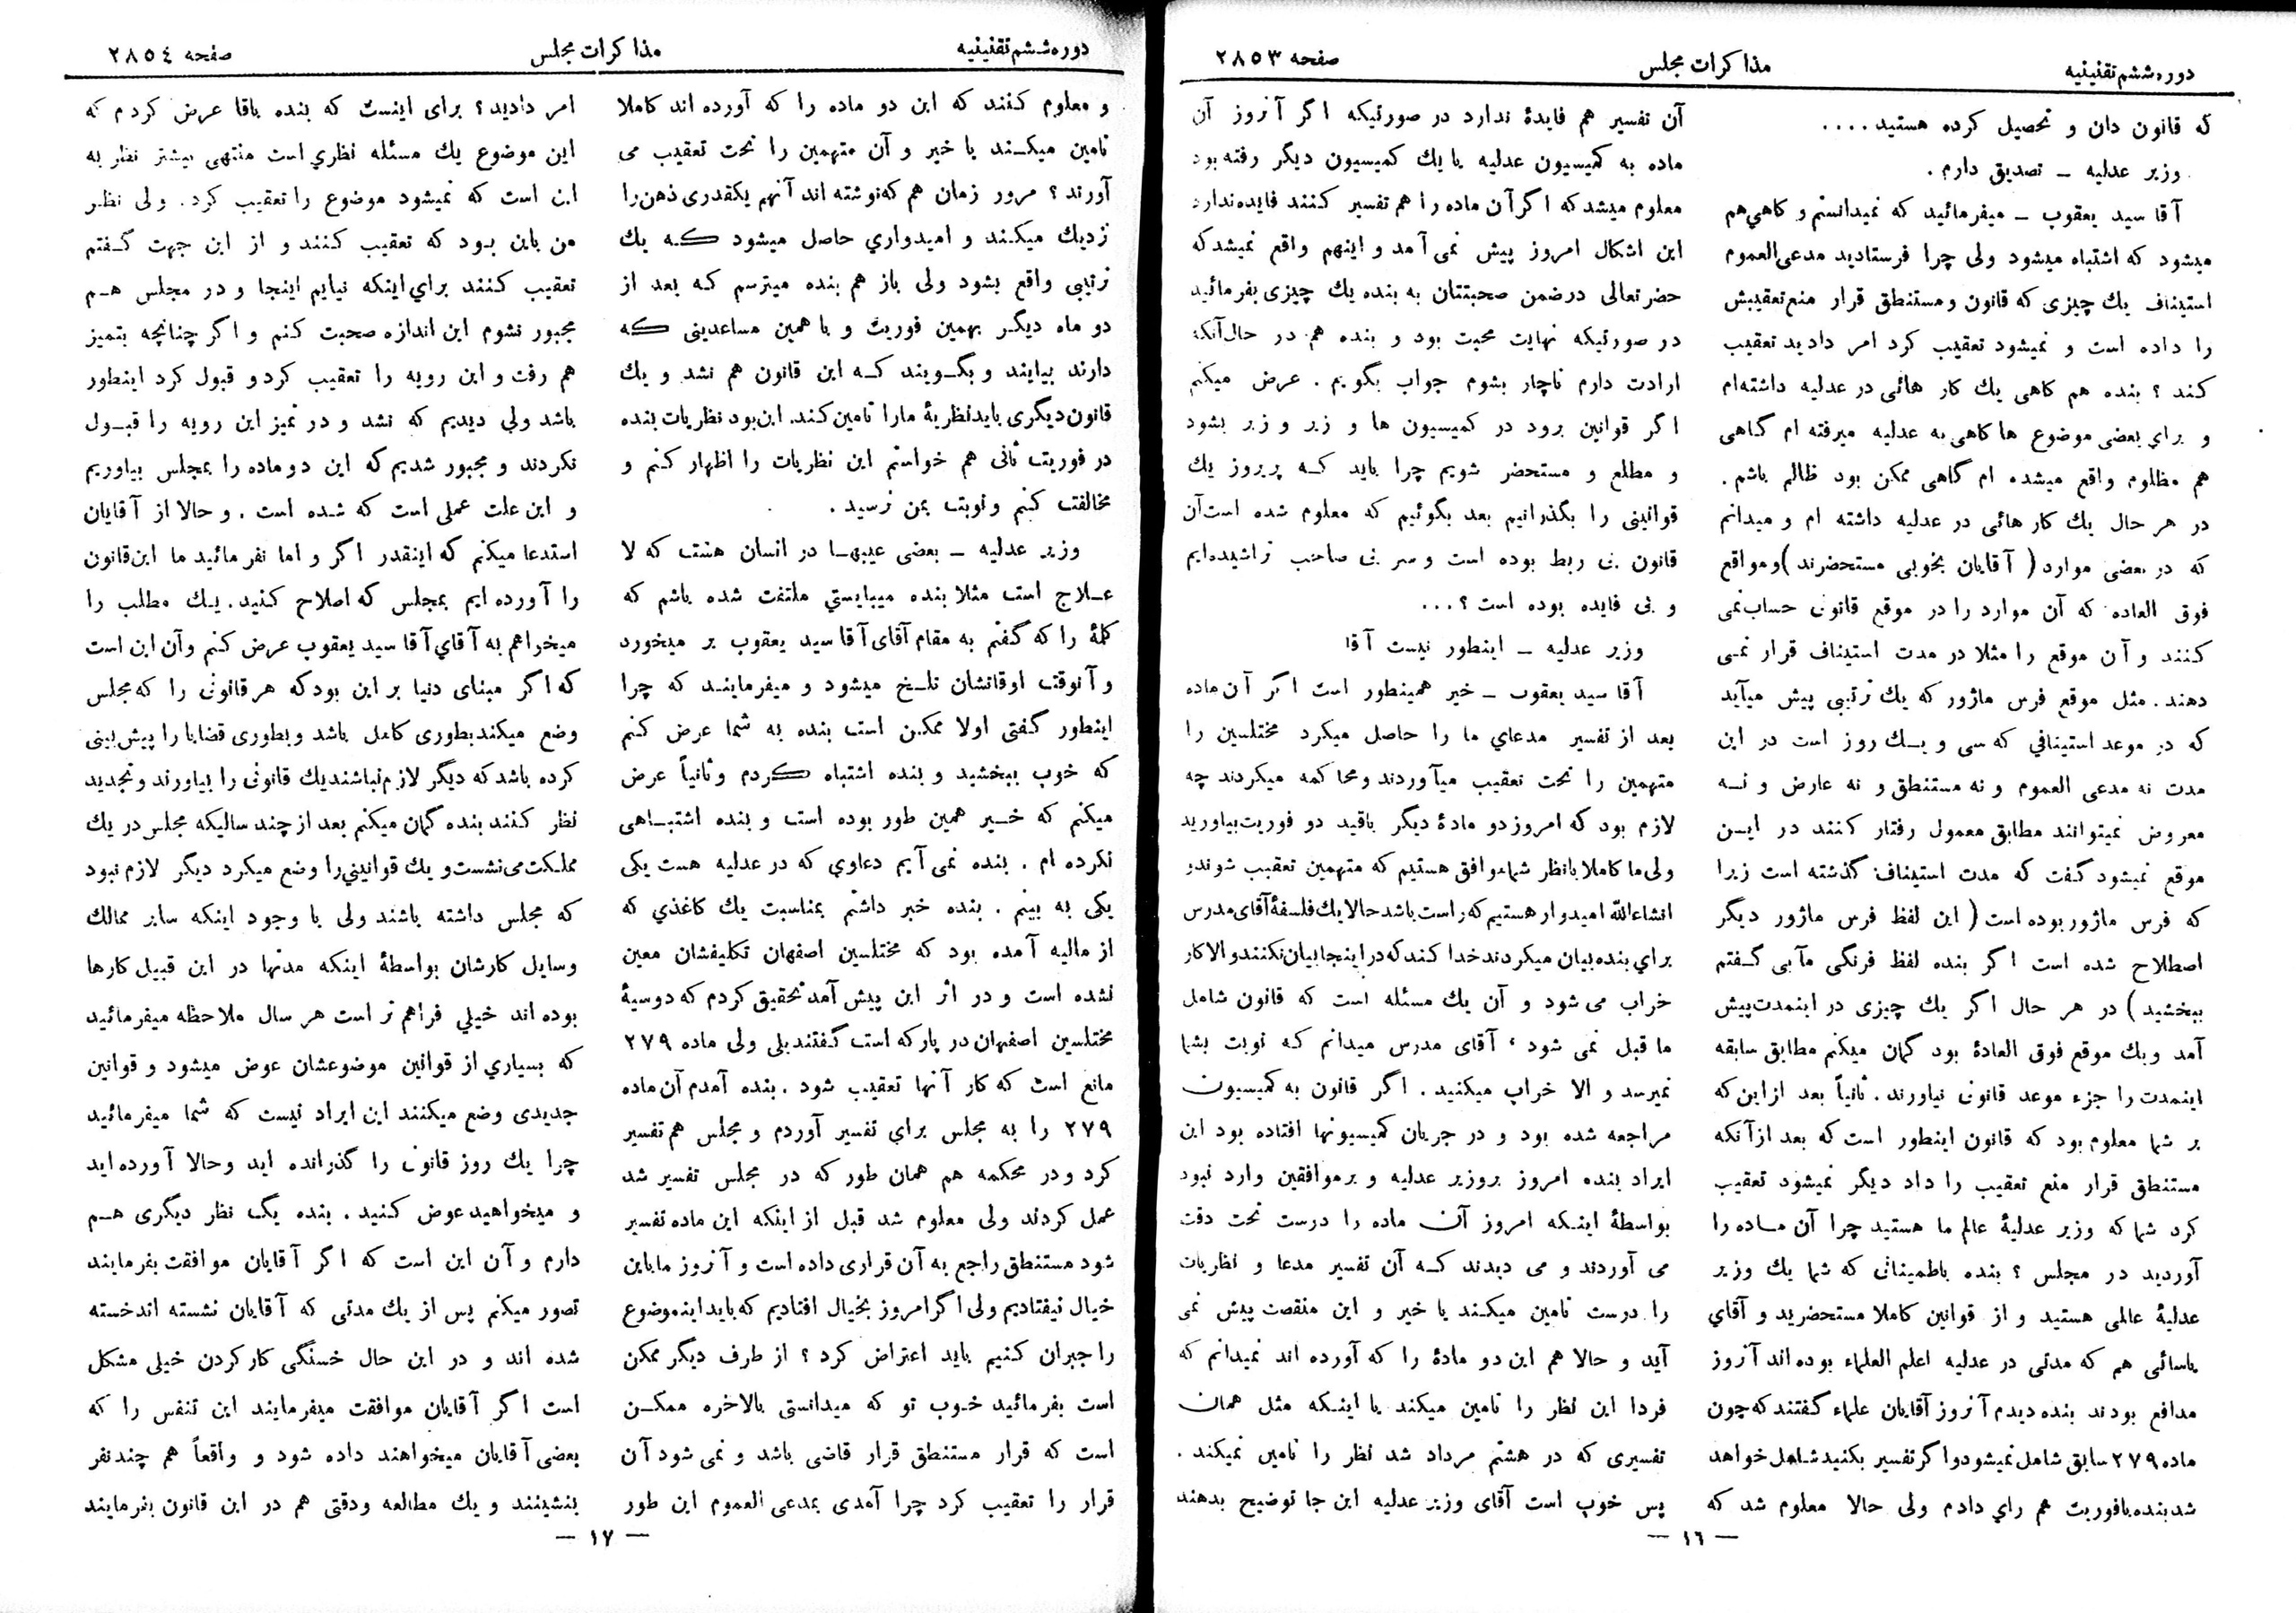 دوره ششم تقنینیه
مذاکرات مجلس
صفحه ۲۸۵۳
که قانون دان و تحصیل کرده هستید....
وزیر عدلیه ــ تصدیق دارم.
آقا سید یعقوب ــ میفرمائید که نمیدانستم و گاهی هم
میشود که اشتباه میشود ولی چرا فرستادید مدعی العموم
استیناف یك چیزی که قانون و مستنطق قرار منع تعقیبش
را داده است و نمیشود تعقیب کرد امر دادید تعقیب
کند ؟ بنده هم گاهی یك کار هائی در عدلیه داشته ام
و برای بعضی موضوع ها گاهی به عدلیه میرفته ام گاهی
هم مظلوم واقع میشده ام گاهی ممکن بود ظالم باشم.
در هر حال یك کار هائی در عدلیه داشته ام و میدانم
که در بعضی موارد ( آقایان بخوبی مستحضرند ) و مواقع
فوق العاده که آن موارد را در موقع قانونی حساب نمی
کنند و آن موقع را مثلا در مدت استیناف قرار نمی
دهند. مثل موقع فرس ماژور که یك ترتیبی پیش میآید
که در موعد استینافی که سی و یـك روز است در این
مدت نه مدعی العموم و نه مستنطق و نه عارض و نـه
معروض نمیتوانند مطابق معمول رفتار کنند در ایـن
موقع نمیشود گفت که مدت استیناف گذشته است زیرا
که فرس ماژور بوده است ( این لفظ فرس ماژور دیگر
اصطلاح شده است اگر بنده لفظ فرنگی مآبی گـفتم
ببخشید ) در هر حال اگر یك چیزی در اینمدت پیش
آمد و یك موقع فوق العادۀ بود گمان میکنم مطابق سابقه
اینمدت را جزء موعد قانونی نیاورند. ثانیاً بعد از این که
بر شما معلوم بود که قانون اینطور است که بعد از آنکه
مستنطق قرار منع تعقیب را داد دیگر نمیشود تعقیب
کرد شما که وزیر عدلیۀ عالم ما هستید چرا آن مـاده را
آوردید در مجلس ؟ بنده باطمینانی که شما یك وزیر
عدلیۀ عالمی هستید و از قوانین کاملا مستحضرید و آقای
یاسائی هم که مدتی در عدلیه اعلم العلماء بوده اند آنروز
مدافع بودند بنده دیدم آنروز آقایان علماء گفتند که چون
ماده ۲۷۹ سابق شامل نمیشود و اگر تفسیر بکنید شامل خواهد
شد بنده با فوریت هم رای دادم ولی حالا معلوم شد که
آن تفسیر هم فایدۀ ندارد در صورتیکه اگر آنروز آن
ماده به کمیسیون عدلیه یا یك کمیسیون دیگر رفته بود
معلوم میشد که اگر آن ماده را هم تفسیر کنند فایده ندارد
این اشکال امروز پیش نمی آمد و اینهم واقع نمیشد که
حضرتعالی در ضمن صحبتتان به بنده یك چیزی بفرمائید
در صورتیکه نهایت محبت بود و بنده هم در حال آنکه
ارادت دارم ناچار بشوم جواب بگویم. عرض میکنم
اگر قوانین برود در کمیسیون ها و زیر و زبر بشود
و مطلع و مستحضر شویم چرا باید کـه پریروز یك
قوانینی را بگذرانیم بعد بگوئیم که معلوم شده است آن
قانون بی ربط بوده است و سر بی صاحب تراشیده ایم
و بی فایده بوده است ؟...
وزیر عدلیه ــ اینطور نیست آقا
آقا سید یعقوب ــ خیر همینطور است اگر آن ماده
بعد از تفسیر مدعای ما را حاصل میکرد مختلسین را
متهمین را تحت تعقیب میآوردند و محاکمه میکردند چه
لازم بود که امروز دو مادۀ دیگر باقید دو فوریت بیاورید
ولی ما کاملا با نظر شما موافق هستیم که متهمین تعقیب شوند و
انشاءالله امیدوار هستیم که راست باشد حالا یك فلسفۀ آقای مدرس
برای بنده بیان میکردند خدا کند که در اینجا بیان نکنند والا کار
خراب می شود و آن یك مسئله است که قانون شامل
ما قبل نمی شود ، آقای مدرس میدانم که نوبت بشما
نمیرسد و الا خراب میکنید. اگر قانون به کمیسیون
مراجعه شده بود و در جریان کمیسیونها افتاده بود این
ایراد بنده امروز بروزیر عدلیه و بر موافقین وارد نبود
بواسطۀ اینـکه امروز آن ماده را درست تحت دقت
می آوردند و می دیدند کـه آن تفسیر مدعا و نظریات
را درست تامین میکـند یا خیر و این منقصت پیش نمی
آید و حالا هم این دو مادۀ را که آورده اند نمیدانم که
فردا این نظر را تامین میکند یا اینـکه مثل همان
تفسیری که در هشتم مرداد شد نظر را تامین نمیکند.
پس خوب است آقای وزیر عدلیه این جا توضیح بدهند
— ۱٦ —
دوره ششم تقنینیه
مذاکرات مجلس
صفحه ۲۸۵٤
و معلوم کنند که این دو ماده را که آورده اند کاملا
تامین میکـند یا خیر و آن متهمین را تحت تعقیب می
آورند ؟ مرور زمان هم که نوشته اند آنهم یکقدری ذهن را
نزدیك میکـند و امیدواری حاصل میشود کـه یك
ترتیبی واقع بشود ولی باز هم بنده میترسم کـه بعد از
دو ماه دیگـر بهمین فوریت و با همین مساعدینی کـه
دارند بیایند و بگـویند کـه این قانون هم نشد و یك
قانون دیگری باید نظریۀ ما را تامین کند. این بود نظریات بنده
در فوریت ثانی هم خواستم این نظریات را اظهار کنم و
مخالفت کنم و نوبت بمن نرسید.
وزیر عدلیه ــ بعضی عیبهـا در انسان هست که لا
عـلاج است مثلا بنده میبایستی ملتفت شده باشم که
کلمۀ را که گفتم به مقام آقای آقا سید یعقوب بر میخورد
و آنوقت اوقاتشان تلـخ میشود و میفرماینـد که چرا
اینطور گفتی اولا ممکـن است بنده به شما عرض کنم
که خوب ببخشید و بنده اشتباه کـردم و ثانیاً عرض
میکنم که خـیر همین طور بوده است و بنده اشتبـاهی
نکرده ام. بنده نمی آیم دعاوی که در عدلیه هست یکی
یکی به بینم. بنده خبر داشتم بمناسبت یك کاغذی که
از مالیه آمده بود که مختلسین اصفهان تکلیفشان معین
نشده است و در اثر این پیش آمد تحقیق کردم که دوسیۀ
مختلسین اصفهان در پارکه است گفتند بلی ولی ماده ۲۷۹
مانع است که کار آنها تعقیب شود. بنده آمدم آن ماده
۲۷۹ را به مجلس برای تفسیر آوردم و مجلس هم تفسیر
کرد و در محکمه هم همان طور که در مجلس تفسیر شد
عمل کردند ولی معلوم شد قبل از اینکه این ماده تفسیر
شود مستنطق راجع به آن قراری داده است و آنروز ما باین
خیال نیفتادیم ولی اگر امروز بخیال افتادیم که باید این موضوع
را جبران کنیم باید اعتراض کرد ؟ از طرف دیگر ممکن
است بفرمائید خـوب تو که میدانستی بالاخره ممکـن
است که قرار مستنطق قرار قاضی باشد و نمی شود آن
قرار را تعقیب کرد چرا آمدی بمدعی العموم این طور
امر دادید ؟ برای اینست که بنده باقا عرض کردم که
این موضوع یك مسئله نظری است منتهی بیشتر نظر به
این است که نمیشود موضوع را تعقیب کرد. ولی نظر
من باین بـود که تعقیب کـنند و از این جهت گـفتم
تعقیب کـنند برای اینکه نیایم اینجا و در مجلس هـم
مجبور نشوم این اندازه صحبت کـنم و اگر چنانچه بتمیز
هم رفت و این رویه را تعقیب کرد و قبول کرد اینطور
باشد ولی دیدیم که نشد و در تمیز این رویه را قبـول
نکردند و مجبور شدیم که این دو ماده را بمجلس بیاوریم
و این علت عملی است که شده است. و حالا از آقایان
استدعا میکنم که اینقدر اگر و اما نفرمائید ما این قانون
را آورده ایم بمجلس که اصلاح کنید. یـك مطلب را
میخواهم به آقای آقا سید یعقوب عرض کنم و آن این است
که اگر مبنای دنیا بر این بود که هر قانونی را که مجلس
وضع میکند بطوری کامل باشد و بطوری قضایا را پیش بینی
کرده باشد که دیگر لازم نباشند یك قانونی را بیاورند و تجدید
نظر کـنند بنده گمان میکنم بعد از چند سالیکه مجلس در یك
مملـکت می نشست و یك قوانینی را وضع میکرد دیگر لازم نبود
که مجلس داشته باشند ولی با وجود اینکه سایر ممالك
وسایل کارشان بواسطۀ اینکه مدتها در این قبیل کارها
بوده اند خیلی فراهم تر است هر سال ملاحظه میفرمائید
که بسیاری از قوانین موضوعشان عوض میشود و قوانین
جدیدی وضع میکنند این ایراد نیست که شما میفرمائید
چرا یك روز قانونی را گذرانده اید و حالا آورده اید
و میخواهید عوض کـنید. بنده یك نظر دیگری هـم
دارم و آن این است که اگر آقایان موافقت بفرمایند
تصور میکنم پس از یك مدتی که آقایان نشسته اند خسته
شده اند و در این حال خستگی کار کردن خیلی مشکل
است اگر آقایان موافقت میفرمایند این تنفس را که
بعضی آقایان میخواهند داده شود و واقعاً هم چند نفر
بنشینند و یك مطالعه و دقتی هم در این قانون بفرمایند
— ۱۷ —